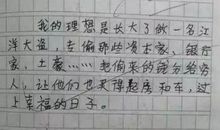 我的理想是长大了做一名江
洋大盗，专偷那些资本家、银行
家、土豪……把偷来的钱分给穷
人，让他们也买得起房和车，过
上幸福的日子。